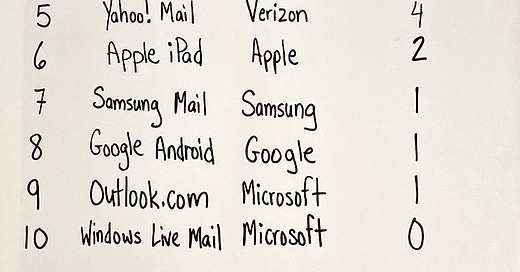 5 Yahoo! Mail Verizon 4
6 Apple iPad Apple 2
7 Samsung Mail Samsung 1
8 Google Android Google 1
9 Outlook.com Microsoft 1
10 Windows Live Mail Microsoft 0